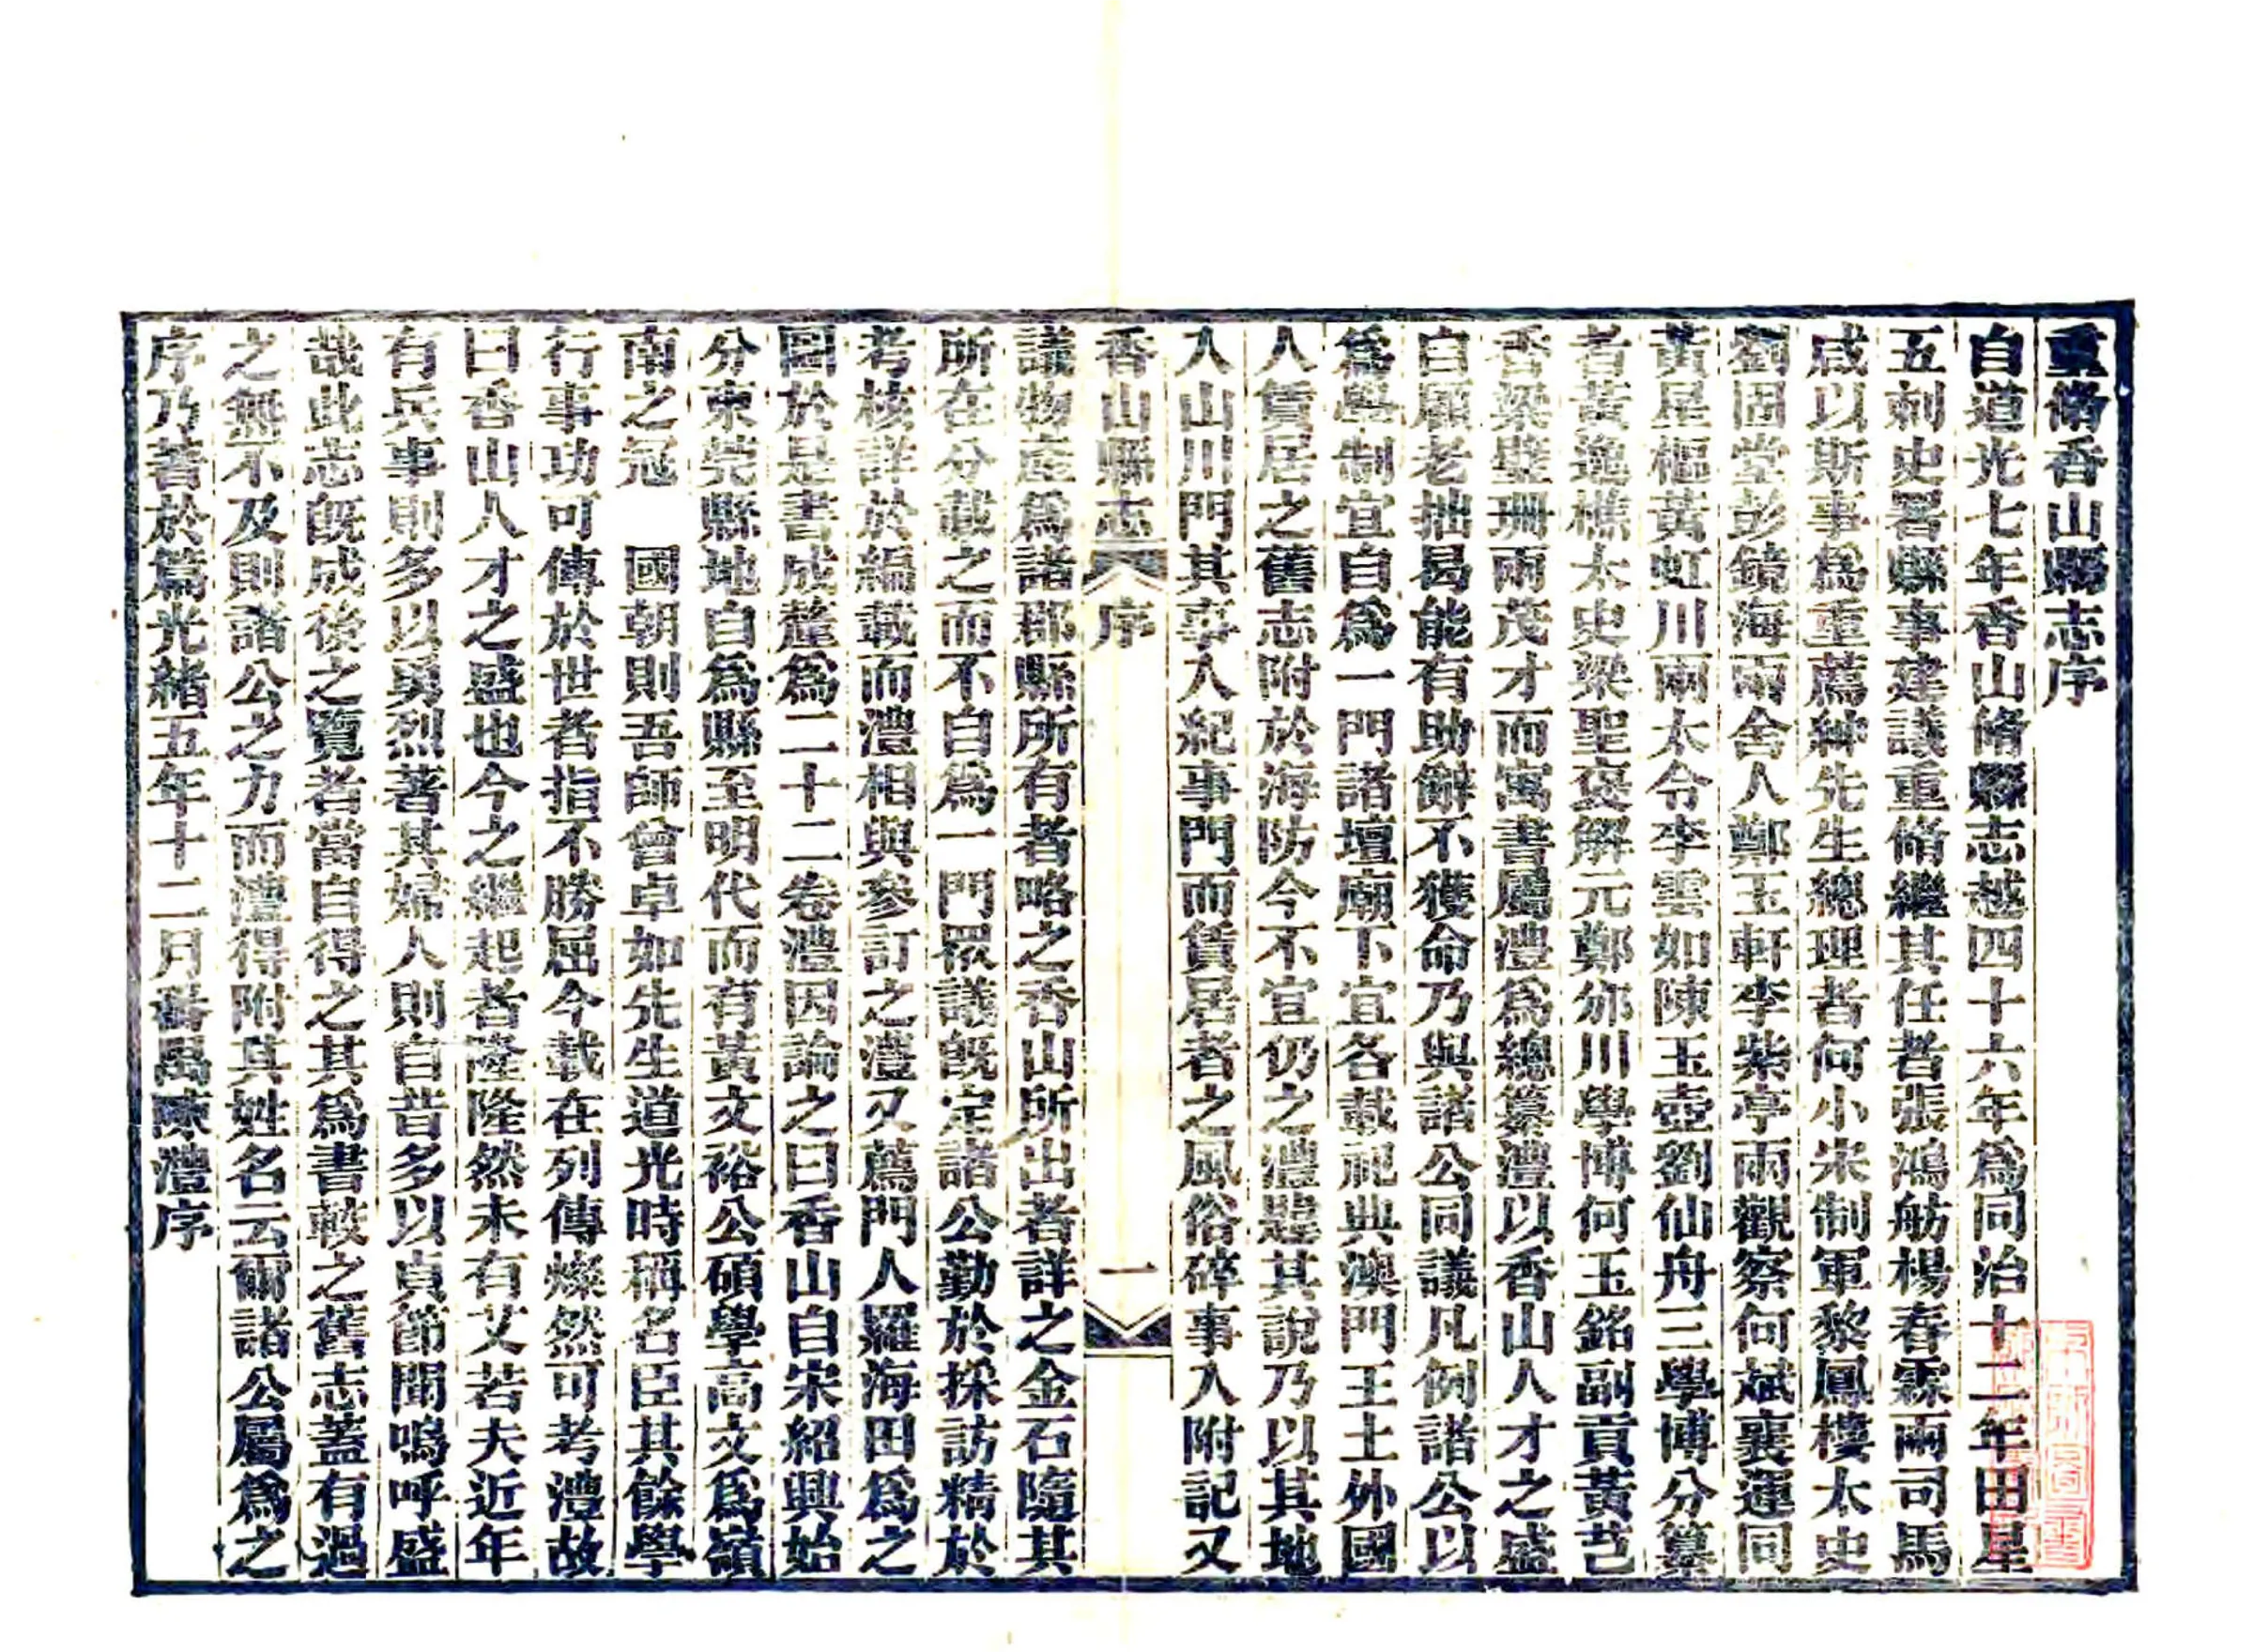 重脩香山縣志序
自道光七年香山脩縣志越四十六年爲同治十二年田星
五刺史署縣事建議重脩繼其任者張鴻舫楊春霖兩司馬
咸以斯事爲重薦紳先生總理者何小宋制軍黎鳳樓太史
劉固堂彭鏡海兩舍人鄭玉軒李紫亭兩觀察何斌襄運同
黃星樞黃虹川兩太令李雲如陳玉壺劉仙舟三學博分纂
者黃逸樵太史梁聖褒解元鄭邠川學博何玉銘副貢黃芑
香梁璧珊兩茂才而寓書屬澧爲總纂澧以香山人才之盛
自顧老拙曷能有助辭不獲命乃與諸公同議凡例諸公以
爲學制宜自爲一門諸壇廟下宜各載祀典澳門王土外國
人賃居之舊志附於海防今不宜仍之澧韙其說乃以其地
入山川門其事入紀事門而賃居者之風俗碎事入附記又
香山縣志 序 一
議物產爲諸郡縣所有者略之香山所出者詳之金石隨其
所在分載之而不自爲一門衆議旣定諸公勤於採訪精於
考核詳於編載而澧相與參訂之澧又薦門人羅海田爲之
圖於是書成釐爲二十二卷澧因論之曰香山自宋紹興始
分東莞縣地自爲縣至明代而有黃文裕公碩學高文爲嶺
南之冠 國朝則吾師曾卓如先生道光時稱名臣其餘學
行事功可傳於世者指不勝屈今載在列傳燦然可考澧故
曰香山人才之盛也今之繼起者隆隆然未有艾若夫近年
有兵事則多以勇烈著其婦人則自昔多以貞節聞嗚呼盛
哉此志旣成後之覽者當自得之其爲書較之舊志蓋有過
之無不及則諸公之力而澧得附其姓名云爾諸公屬爲之
序乃著於篇光緒五年十二月番禺陳澧序